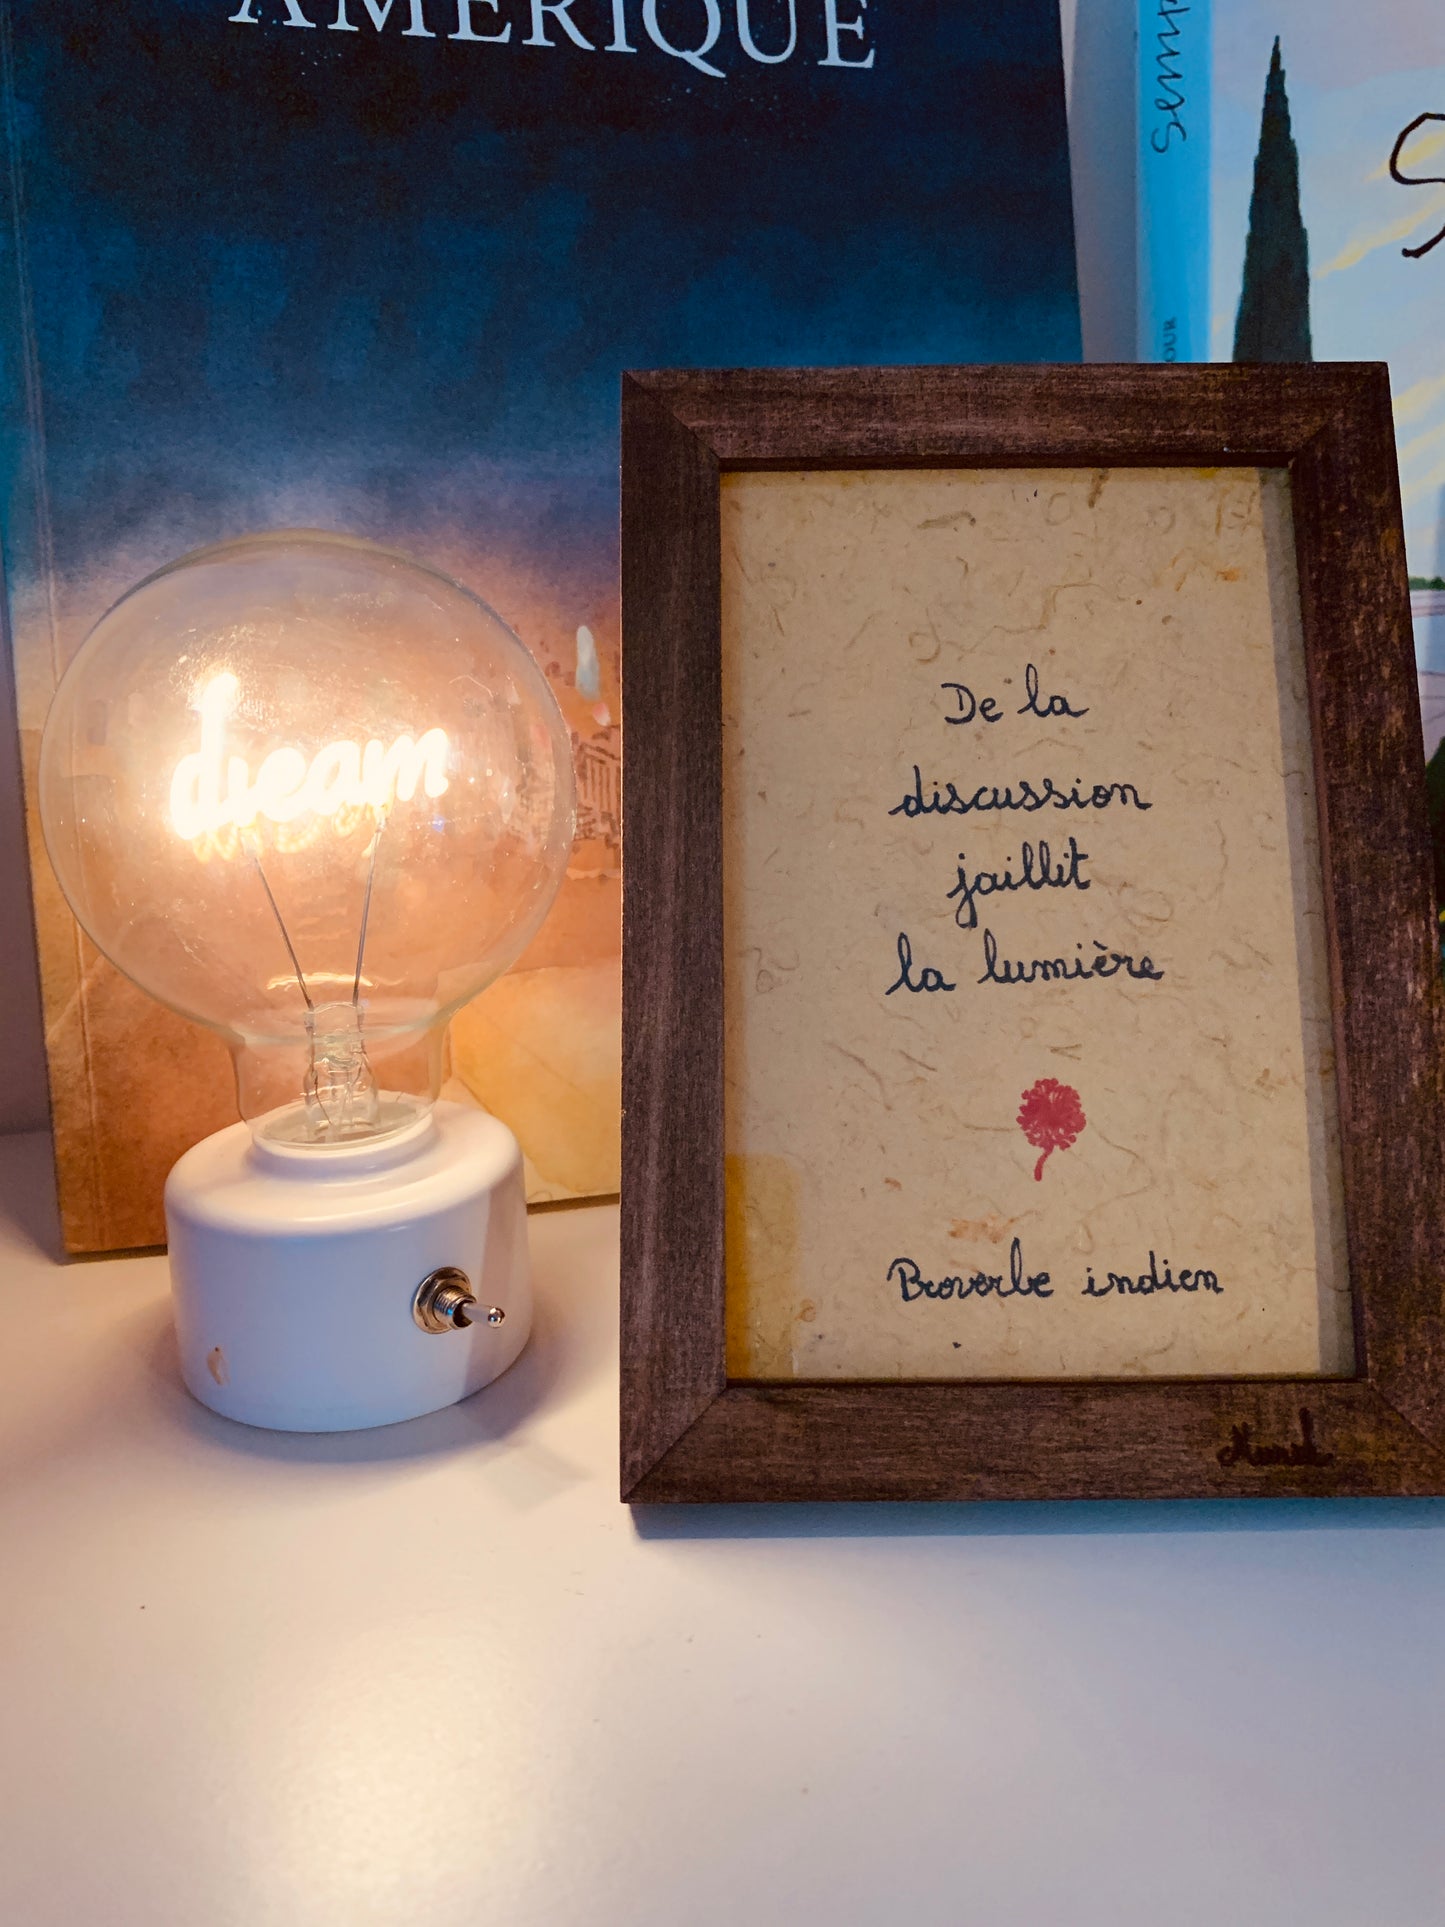 AMÉRIQUE
dream
De la
discussion
jaillit
la lumière
Proverbe indien